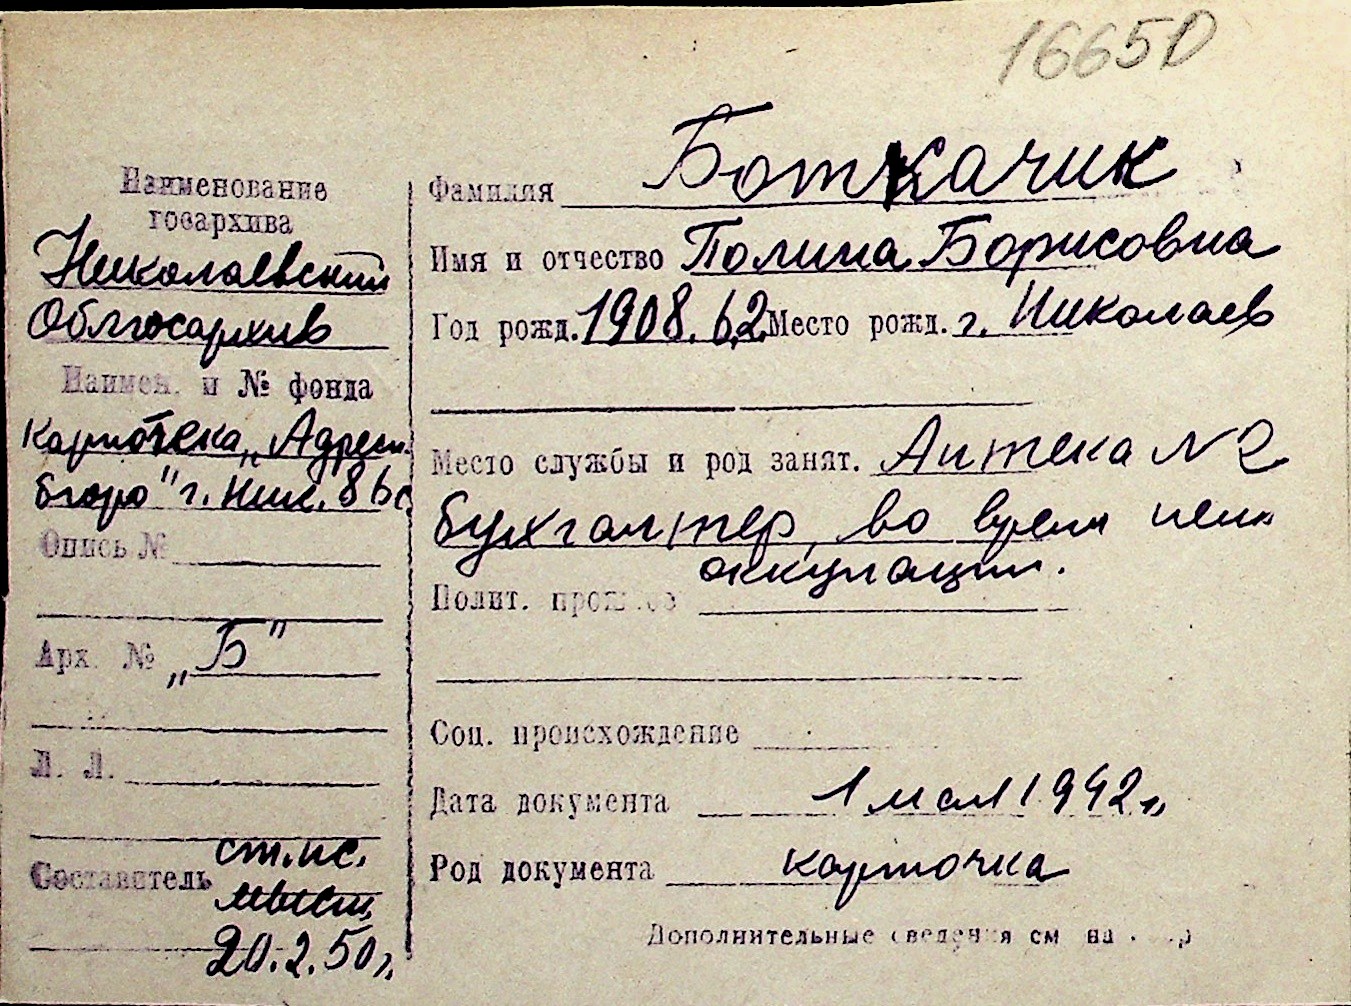 16650
Наименование
госархива
Николаевский
Облгосархив
Наимен. и № фонда
картотека „Адресн.
бюро" г. Ник. 86с
Опись №
Арх. № „Б"
Л. Л.
Составитель ст.нс.
20.2.50г.
Фамилия Боткачик
Имя и отчество Полина Борисовна
Год рожд. 1908.6.2. Место рожд. г. Николаев
Место службы и род занят. Аптека № 2
бухгалтер, во время нем.
оккупации.
Полит. прошлое
Соц. происхождение
Дата документа 1 мая 1942г.
Род документа карточка
Дополнительные сведения см на